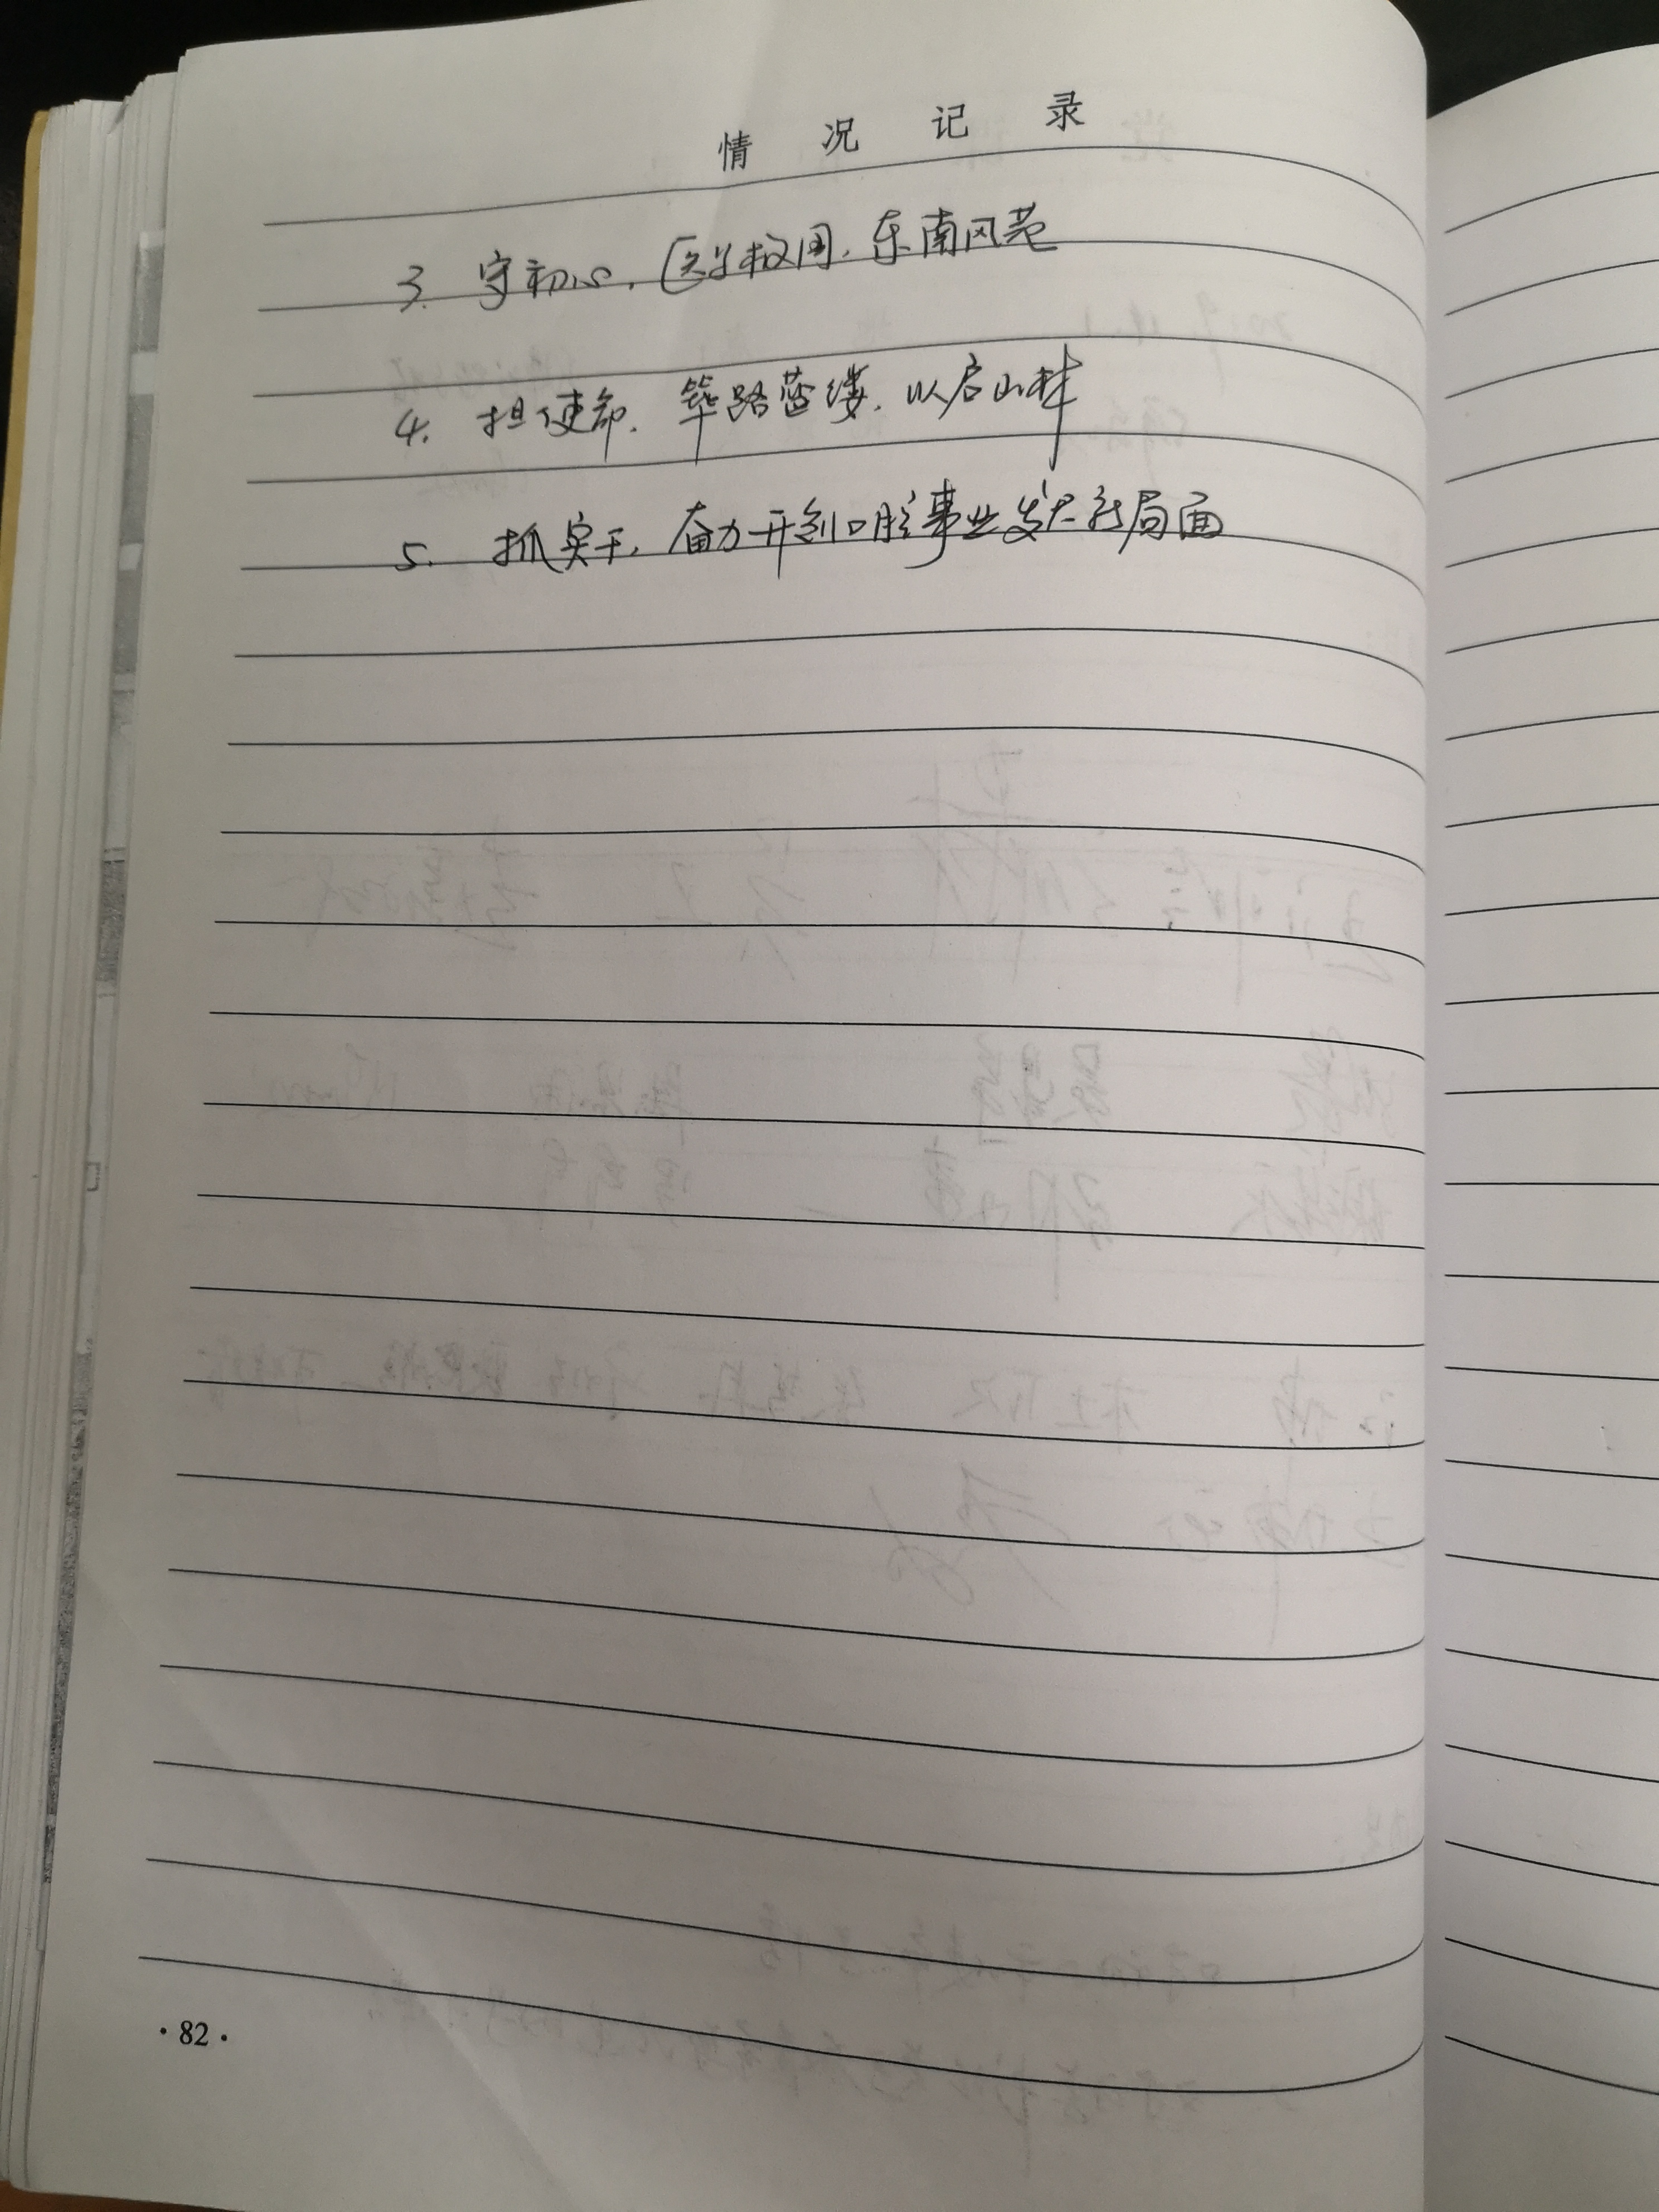 情况记录
3. 守初心, 医学救国, 东南风范
4. 担使命, 筚路蓝缕, 以启山林
5. 抓实干, 奋力开创口腔事业发展新局面
·82·